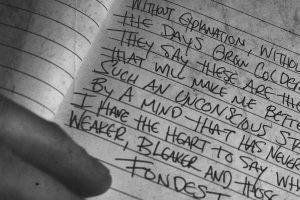 WITHOUT EXPLANATION, WITHOU
THE DAYS GROW COLDER
THEY SAY THESE ARE THE
THAT WILL MAKE ME BETTE
SUCH AN UNCONSCIOUS STR
BY A MIND THAT HAS NEVER
I HAVE THE HEART TO SAY WH
WEAKER, BLEAKER AND THOSE
FONDEST